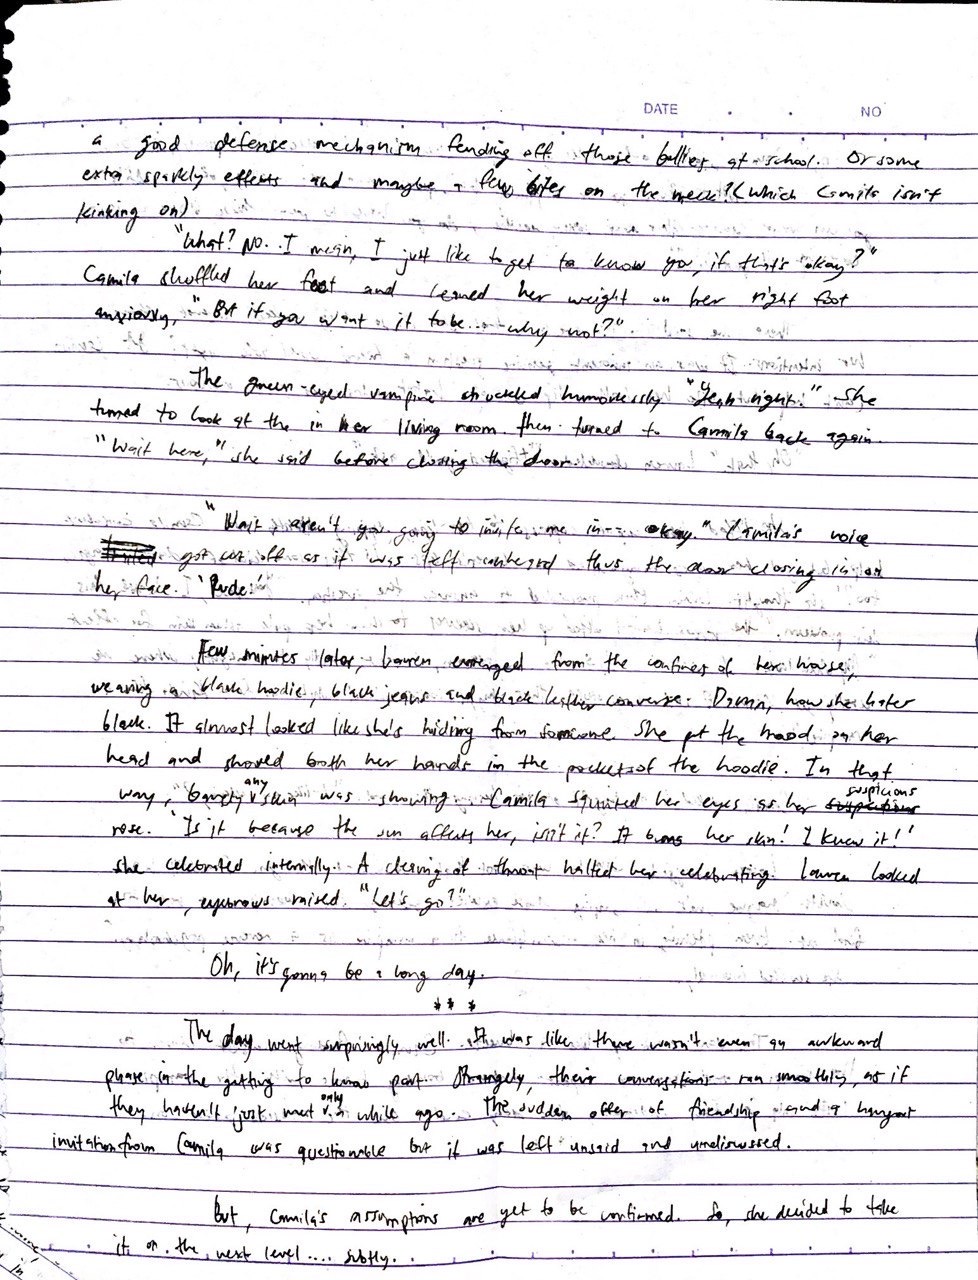 DATE . . NO
a good defense mechanism fending off those bullies at school. Or some
extra sparkly effects and maybe a few bites on the neck? (which Camila isn't
kinking on)
"What? No.. I mean, I just like to get to know you, if that's okay?"
Camila shuffled her foot and leaned her weight on her right foot
anxiously, "But if you want it to be... why not?"
The green-eyed vampire chuckled humorlessly "Yeah right." She
turned to look at the in her living room then turned to Camila back again.
"Wait here," she said before closing the door.
"Wait aren't you going to invite me in-- okay." Camila's voice
got cut off as it was left unheard thus the door closing in on
her face. 'Rude.'
Few minutes later, Lauren emerged from the confines of her house,
wearing a black hoodie, black jeans and black leather converse. Damn, how she hates
black. It almost looked like she's hiding from someone. She put the hood on her
head and shoved both her hands in the pockets of the hoodie. In that
way, barely any skin was showing. Camila squinted her eyes as her suspicions
rose. 'Is it because the sun affects her, isn't it? It burns her skin! I knew it!'
she celebrated internally. A clearing of throat halted her celebrating. Lauren looked
at her, eyebrows raised. "Let's go?"
Oh, it's gonna be a long day.
* * *
The day went surprisingly well. It was like there wasn't even an awkward
phase in the getting to know part. Strangely, their conversations ran smoothly, as if
they haven't just met only a while ago. The sudden offer of friendship and a hangout
invitation from Camila was questionable but it was left unsaid and undiscussed.
But, Camila's assumptions are yet to be confirmed. So, she decided to take
it on the next level.... subtly.